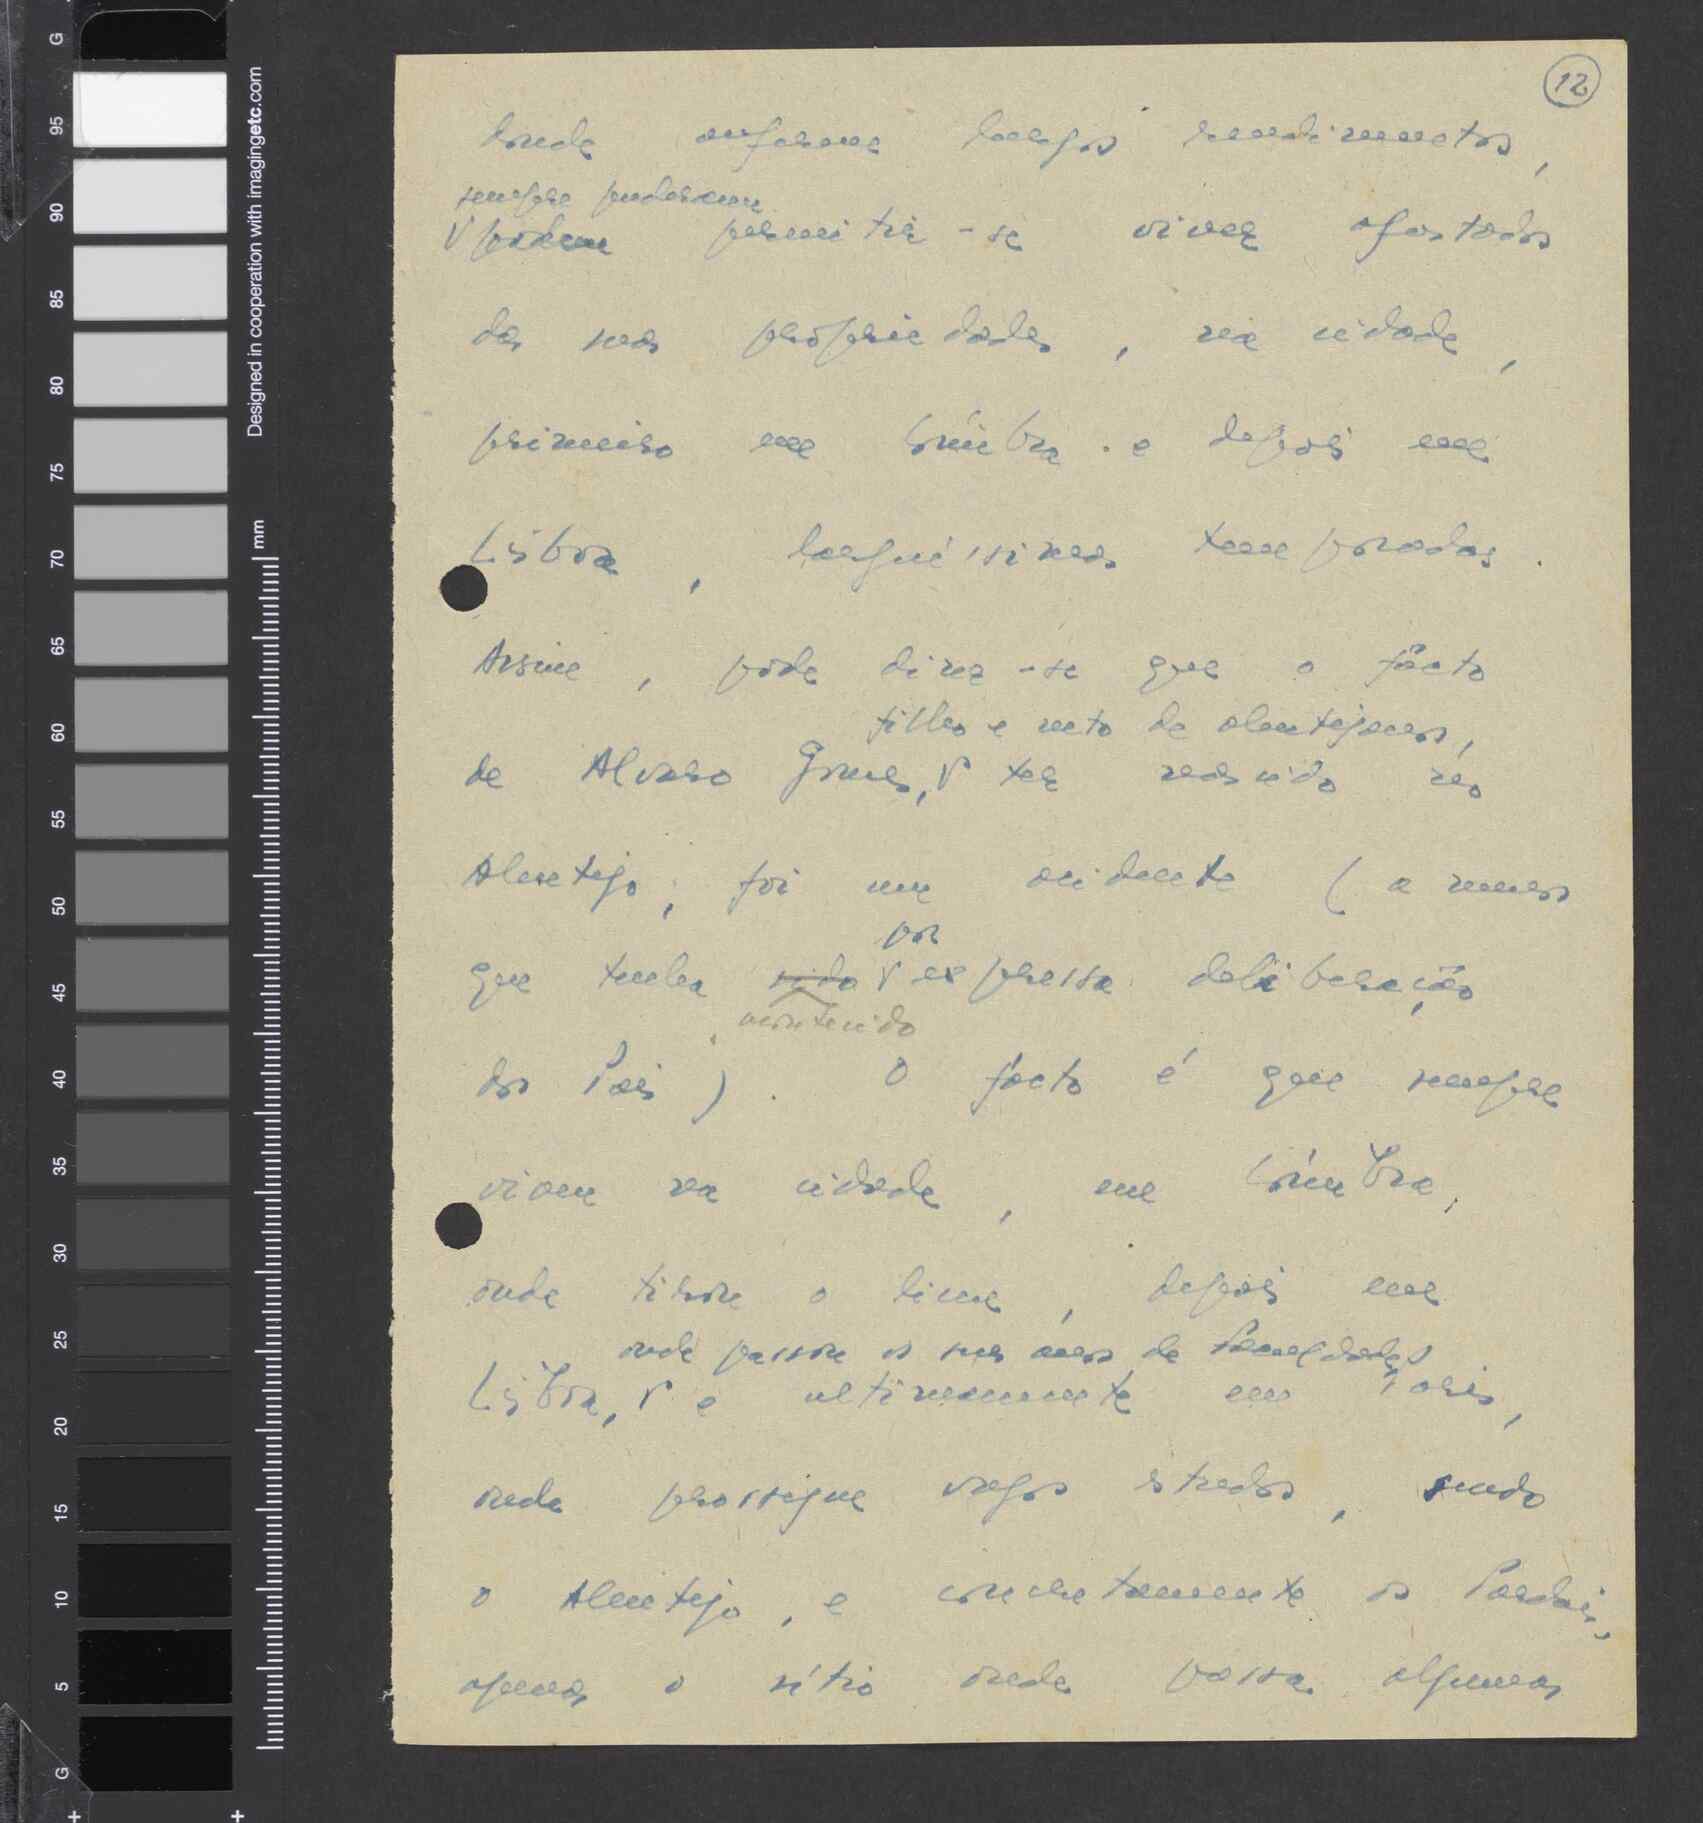 12
donde auferem largos rendimentos,
sempre puderam
V podem permitir-se viver afastados
das suas propriedades, na cidade,
primeiro em Coimbra e depois em
Lisboa, larguíssimas temporadas.
Assim, pode dizer-se que o facto
filho e neto de alentejanos,
de Alvaro Gomes, V ter nascido no
Alentejo, foi um acidente (a menos
por
que tenha sido V expressa deliberação
acontecido
dos Pais). O facto é que sempre
viveu na cidade, em Coimbra,
onde tirou o liceu, depois em
onde passou os seus anos de
Lisboa, V e ultimamente em Paris,
onde prossegue vagos estudos, sendo
o Alentejo, e concretamente os Pardais,
apenas o sítio onde passa algumas
G
95
90
85
80
75
70
65
60
55
50
45
40
35
30
25
20
15
10
5
G
Designed in cooperation with imagingetc.com
mm